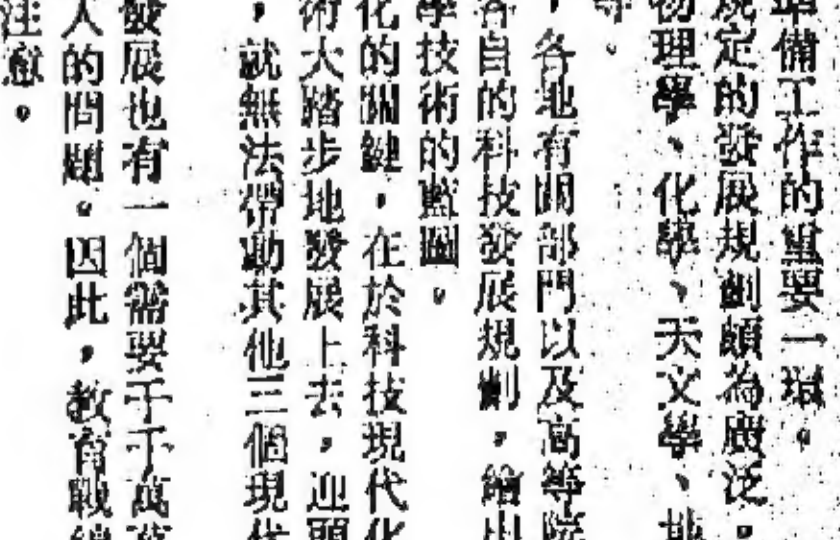 準備工作的重要一環。
規定的發展規劃頗為廣泛。
物理學、化學、天文學、地
等。
，各地有關部門以及高等院
各自的科技發展規劃，繪出
學技術的藍圖。
化的關鍵，在於科技現代化
術大踏步地發展上去，迎頭
，就無法帶動其他三個現代
發展也有一個需要千千萬萬
人的問題。因此，教育戰線
注意。